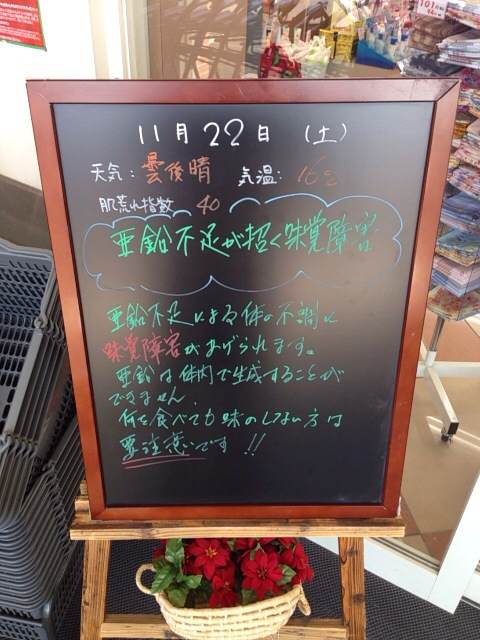 11月22日 (土)
天気: 曇後晴 気温: 16℃
肌荒れ指数 40
亜鉛不足が招く味覚障害
亜鉛不足による体の不調に
味覚障害があげられます。
亜鉛は体内で生成することが
できません。
何を食べても味のしない方は
要注意です!!